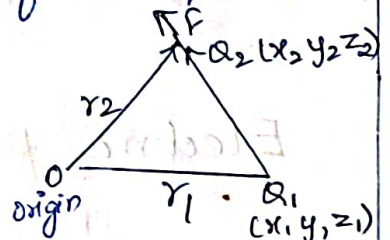 F
Q2 (x2 y2 z2)
r2
O
origin
r1
Q1
(x1 y1 z1)